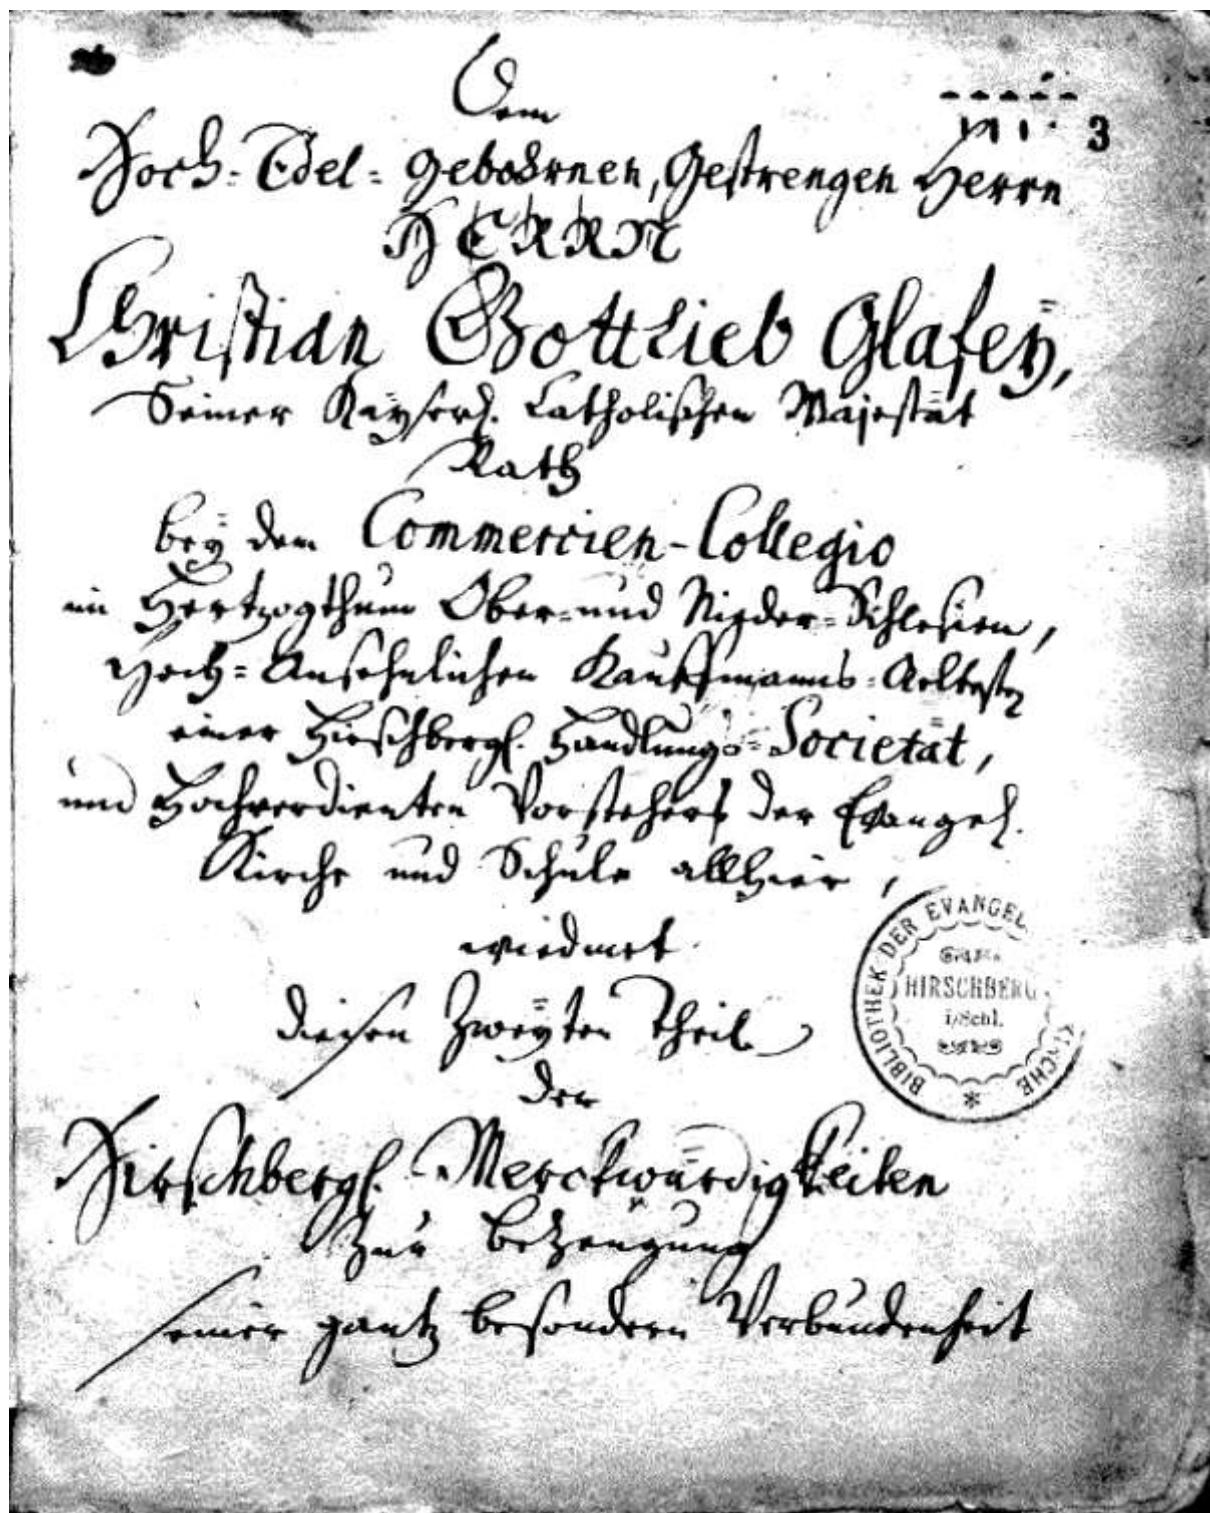 Dem
3
Hoch-Edel-gebohrnen, Gestrengen Herrn
HERRN
Christian Gottlieb Glafeÿ,
Seiner Kaÿserl. Catholischen Majestät
Rath
beÿ dem Commercien-Collegio
im Hertzogthum Ober- und Nieder-Schlesien,
Hoch-Ansehnlichen Kauffmanns-Aeltesten
einer Hirschbergl. Handlungs-Societät,
und Hochverdienten Vorsteher der Evangel.
Kirche und Schule allhier,
wiedmet
diesen Zweÿten Theil
der
Hirschbergl. Merckwürdigkeiten
Zur Bezeugung
seiner gantz besondern Verbundenheit
BIBLIOTHEK DER EVANGEL
KIRCHE
HIRSCHBERG
i/Schl.